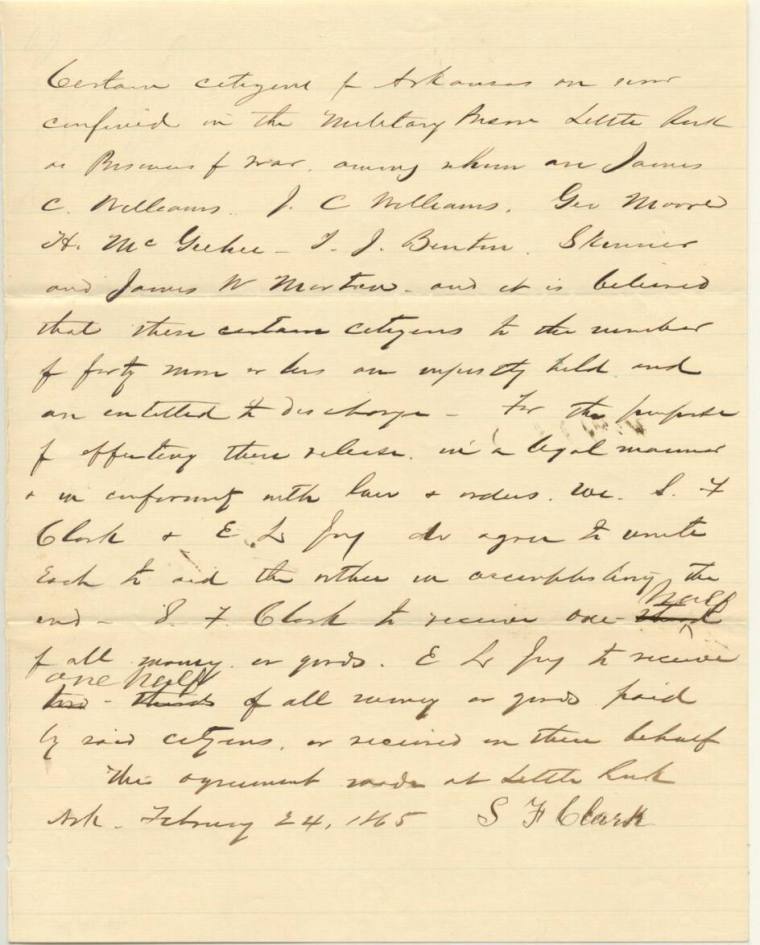 Certain citizens of Arkansas are now
confined in the Military Prison Little Rock
as Prisoners of War, among whom are James
C. Williams. J. C Williams. Geo Moore
H. McGehee - T. J. Benton. Skinner
and James W Martin - and it is believed
that these certain citizens to the number
of forty more or less are unjustly held and
are entitled to discharge - For the purpose
of effecting their release. in a legal manner
& in conformity with law & orders. We. S. F
Clark & E L Joy do agree to unite
Each to aid the other in accomplishing the
end - S. F. Clark to receive one third half
of all money or goods. E L Joy to receive
one half
two - thirds of all money or goods paid
by said citizens, or received on their behalf
This agreement made at Little Rock
Ark. February 24, 1865 S F Clark